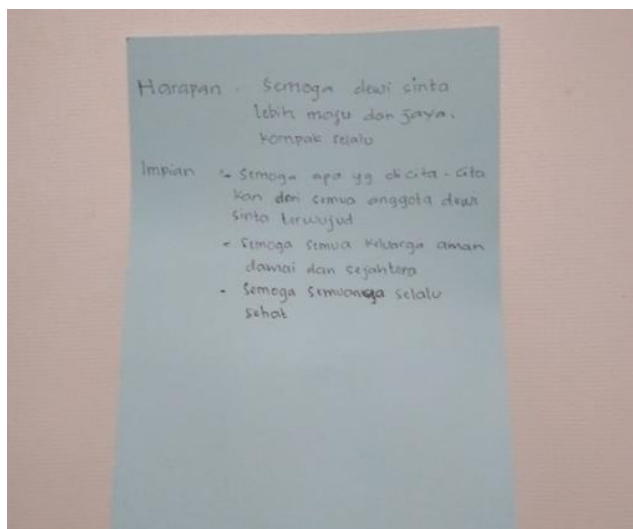 Harapan . Semoga dewi sinta
lebih maju dan jaya.
kompak selalu
Impian :- Semoga apa yg dicita-cita
kan dari semua anggota dewi
sinta terwujud
- Semoga semua keluarga aman
damai dan sejahtera
- Semoga semuanya selalu
sehat